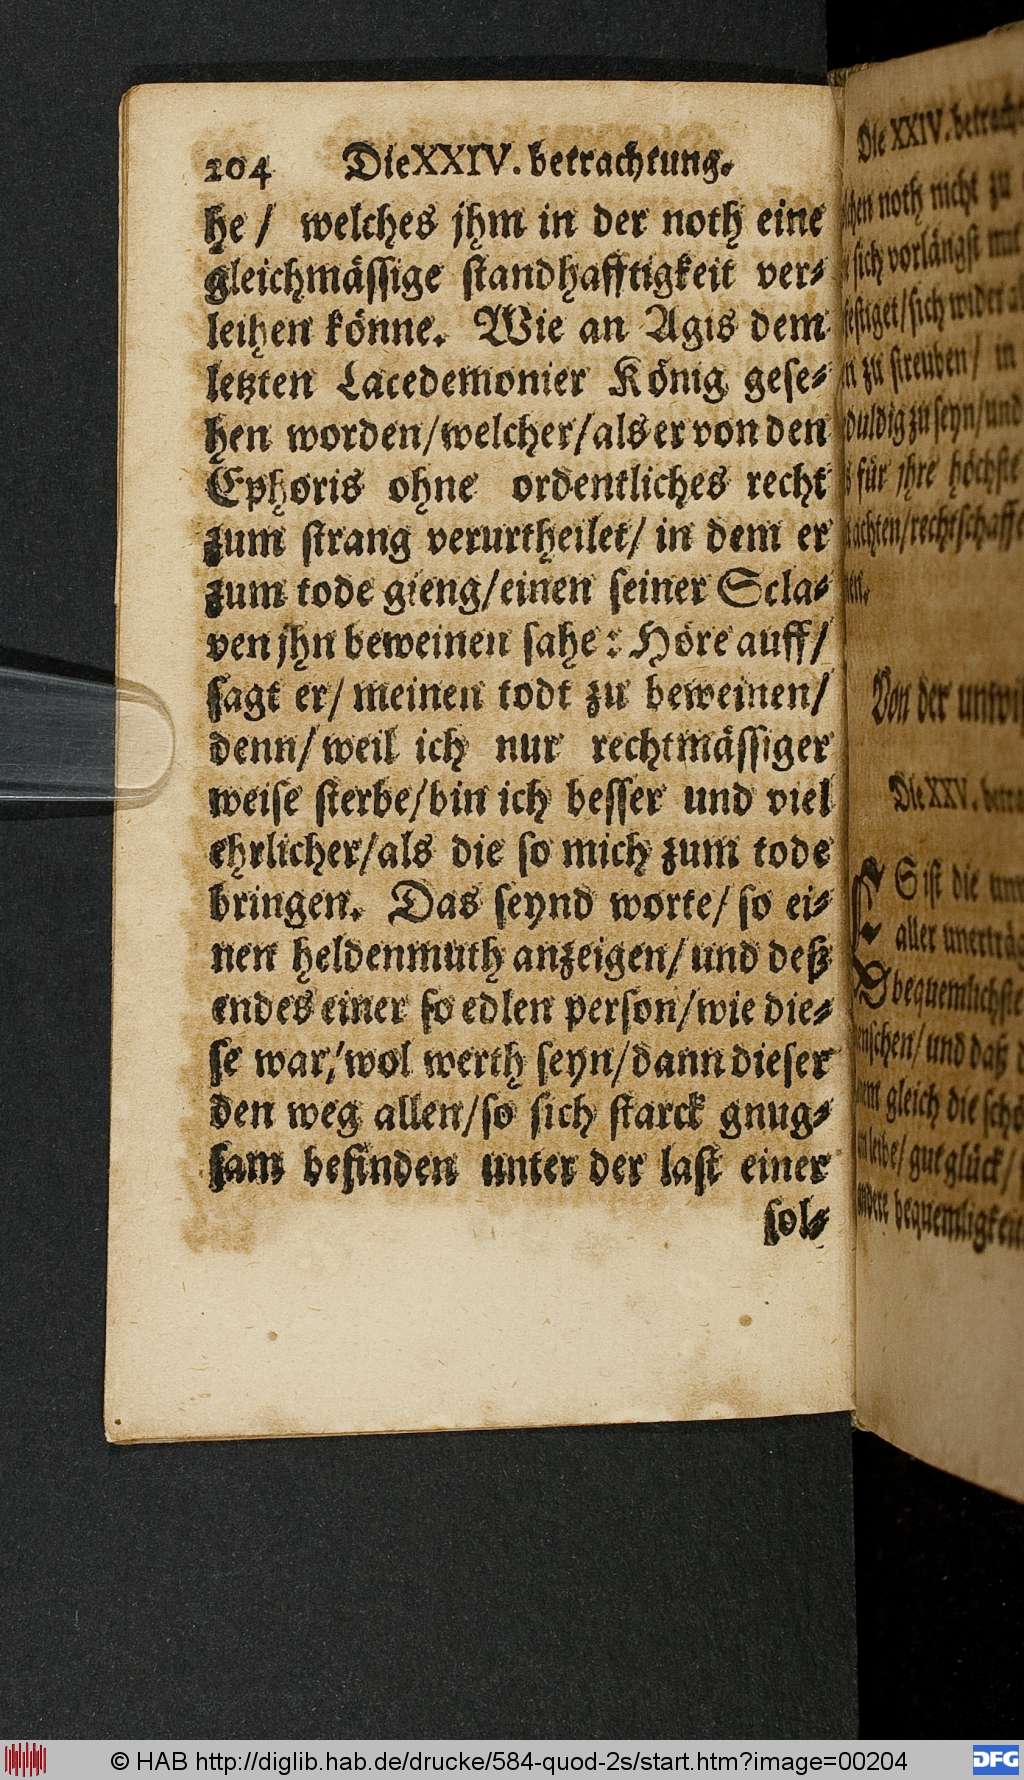 204 Die XXIV. betrachtung.
he / welches jhm in der noth eine
gleichmässige standhafftigkeit ver-
leihen könne. Wie an Agis dem
letzten Lacedemonier König gese-
hen worden/welcher/als er von den
Ephoris ohne ordentliches recht
zum strang verurtheilet/ in dem er
zum tode gieng/einen seiner Scla-
ven jhn beweinen sahe: Höre auff/
sagt er/ meinen todt zu beweinen/
denn/ weil ich nur rechtmässiger
weise sterbe/bin ich besser und viel
ehrlicher/als die so mich zum tode
bringen. Das seynd worte/ so ei-
nen heldenmuth anzeigen/ und deß
endes einer so edlen person/wie die-
se war/wol werth seyn/dann dieser
den weg allen/so sich starck gnug-
sam befinden unter der last einer
sol-
Die XXIV.
noth nicht zu
sich vorlängst mit
/sich wider
zu streuben/ in
zu seyn/und
für jhre höchste
Von der
Die XXV.
ES ist die
aller
bequemlichste
und daß
gleich die
gut glück/
andere bequemligkeit
© HAB http://diglib.hab.de/drucke/584-quod-2s/start.htm?image=00204
DFG